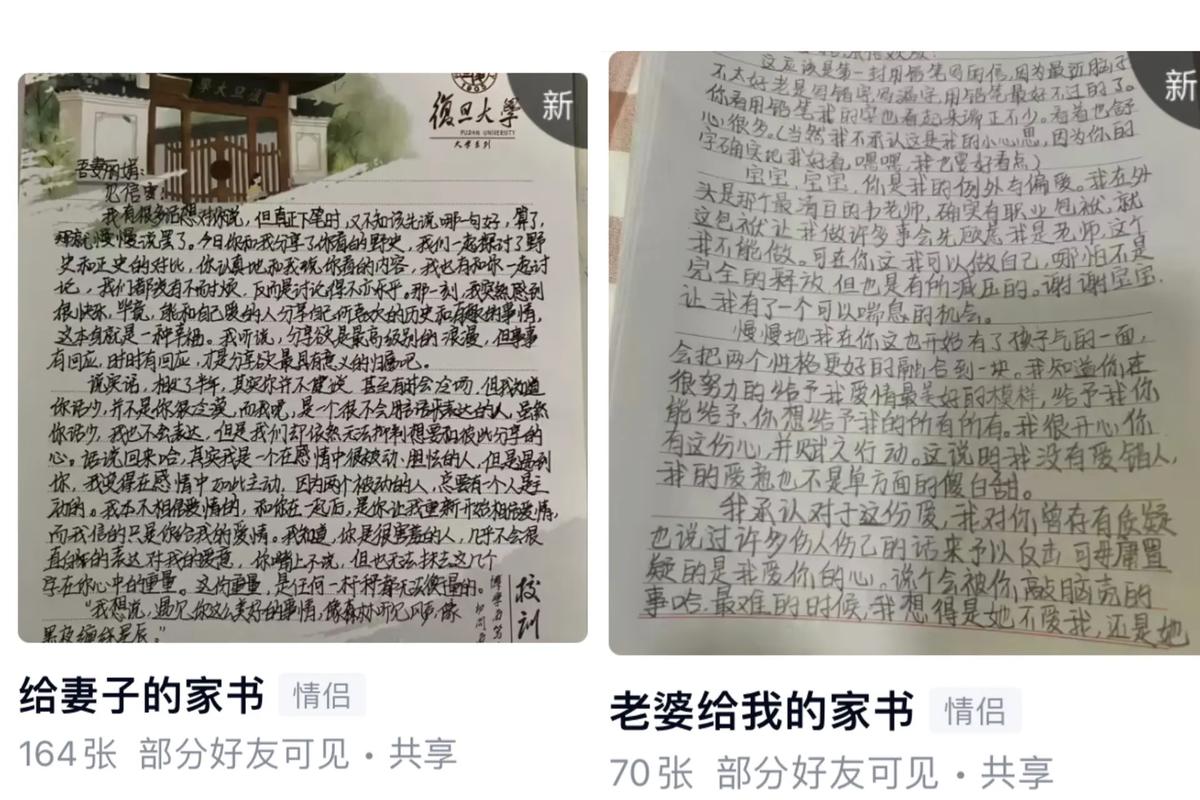 新
學大旦復
1905
復旦大學
FUDAN UNIVERSITY
大学系列
吾妻丽娟:
见信安!
我有很多话想对你说，但真正下笔时，又不知该先说哪一句好，算了，
那就慢慢说罢了。今日你和我分享了你看的野史，我们一起探讨了野
史和正史的对比，你认真地和我说你看的内容，我也有和你一起讨
论，我们都没有不耐烦，反而是讨论得不亦乐乎。那一刻，我突然感到
很快乐，毕竟，能和自己爱的人分享自己所喜欢的历史和有趣的事情，
这本身就是一种幸福。我听说，分享欲是最高级别的浪漫，但事事
有回应，时时有回应，才是分享欲最具有意义的归宿吧。
说实话，相处了半年，其实你并不健谈，甚至有时会冷场，但我知道
你话少，并不是你很冷漠，而我呢，是一个很不会用话语表达的人，虽然
你话少，我也不会表达，但是我们却依然无法抑制想要和彼此分享的
心。话说回来哈，其实我是一个在感情中很被动、胆怯的人，但是遇到
你，我觉得在感情中如此主动，因为两个被动的人，总要有一个人是主
动的。我本不相信爱情的，和你在一起后，是你让我重新开始相信爱情，
而我信的只是你给我的爱情。我知道，你是很害羞的人，几乎不会很
直白的表达对我的爱意，你嘴上不说，但也无法抹去这几个
字在你心中的重量。这份重量，是任何一杆秤都无法衡量的。
“我想说，遇见你这么美好的事情，像森林听见风声，像
黑夜缠绕星辰。”
校训
新
这应该是第一封用铅笔写的信，因为最近脑子
不太好老是写错字、写漏字，用铅笔最好不过的了。
你看用铅笔我的字也看起来端正不少。看着也舒
心很多。(当然我不承认这是我的小心思，因为你的
字确实比我好看，嘿嘿，我也要好看点)
宝宝，宝宝，你是我的例外与偏爱。我在外
头是那个最清白的书老师，确实有职业包袱，就
这包袱让我做许多事会先顾忌我是老师，这个
我不能做。可在你这我可以做自己，哪怕不是
完全的释放，但也是有所减压的。谢谢宝宝，
让我有了一个可以喘息的机会。
慢慢地我在你这也开始有了孩子气的一面，
会把两个性格更好的融合到一块。我知道你在
很努力的给予我爱情最美好的模样，给予我你
能给予、你想给予我的所有所有。我很开心，你
有这份心，并赋之行动。这说明我没有爱错人，
我的爱意也不是单方面的傻白甜。
我承认对于这份爱，我对你曾存有质疑
也说过许多伤人伤己的话来予以反击，可毋庸置
疑的是我爱你的心。说个会被你敲脑壳的
事哈，最难的时候，我想得是她不爱我，还是她
给妻子的家书 情侣
164张 部分好友可见 • 共享
老婆给我的家书 情侣
70张 部分好友可见 • 共享